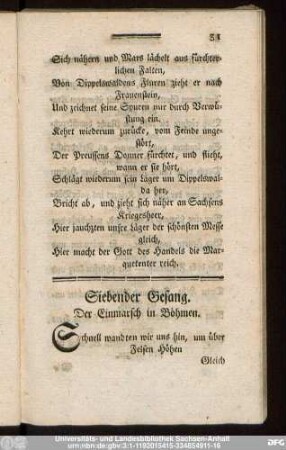 53
Sich nähern und Mars lächelt aus fürchter-
lichen Falten,
Von Dippelswaldens Fluren zieht er nach
Frauenstein,
Und zeichnet seine Spuren nur durch Verwü-
stung ein.
Kehrt wiederum zurück, vom Feinde unge-
stört,
Der Preussens Donner fürchtet, und flieht,
wann er sie hört,
Schlägt wiederum sein Lager um Dippelswal-
da her,
Bricht ab, und zieht sich näher an Sachsens
Kriegesheer,
Hier jauchzten unsre Läger der schönsten Messe
gleich,
Hier macht der Gott des Handels die Mar-
quetenter reich.
Siebender Gesang.
Der Einmarsch in Böhmen.
Schnell wandten wir uns hin, um über
Felsen Höhen
Gleich
Universitäts- und Landesbibliothek Sachsen-Anhalt
urn:nbn:de:gbv:3:1-1192015415-334854911-16
DFG